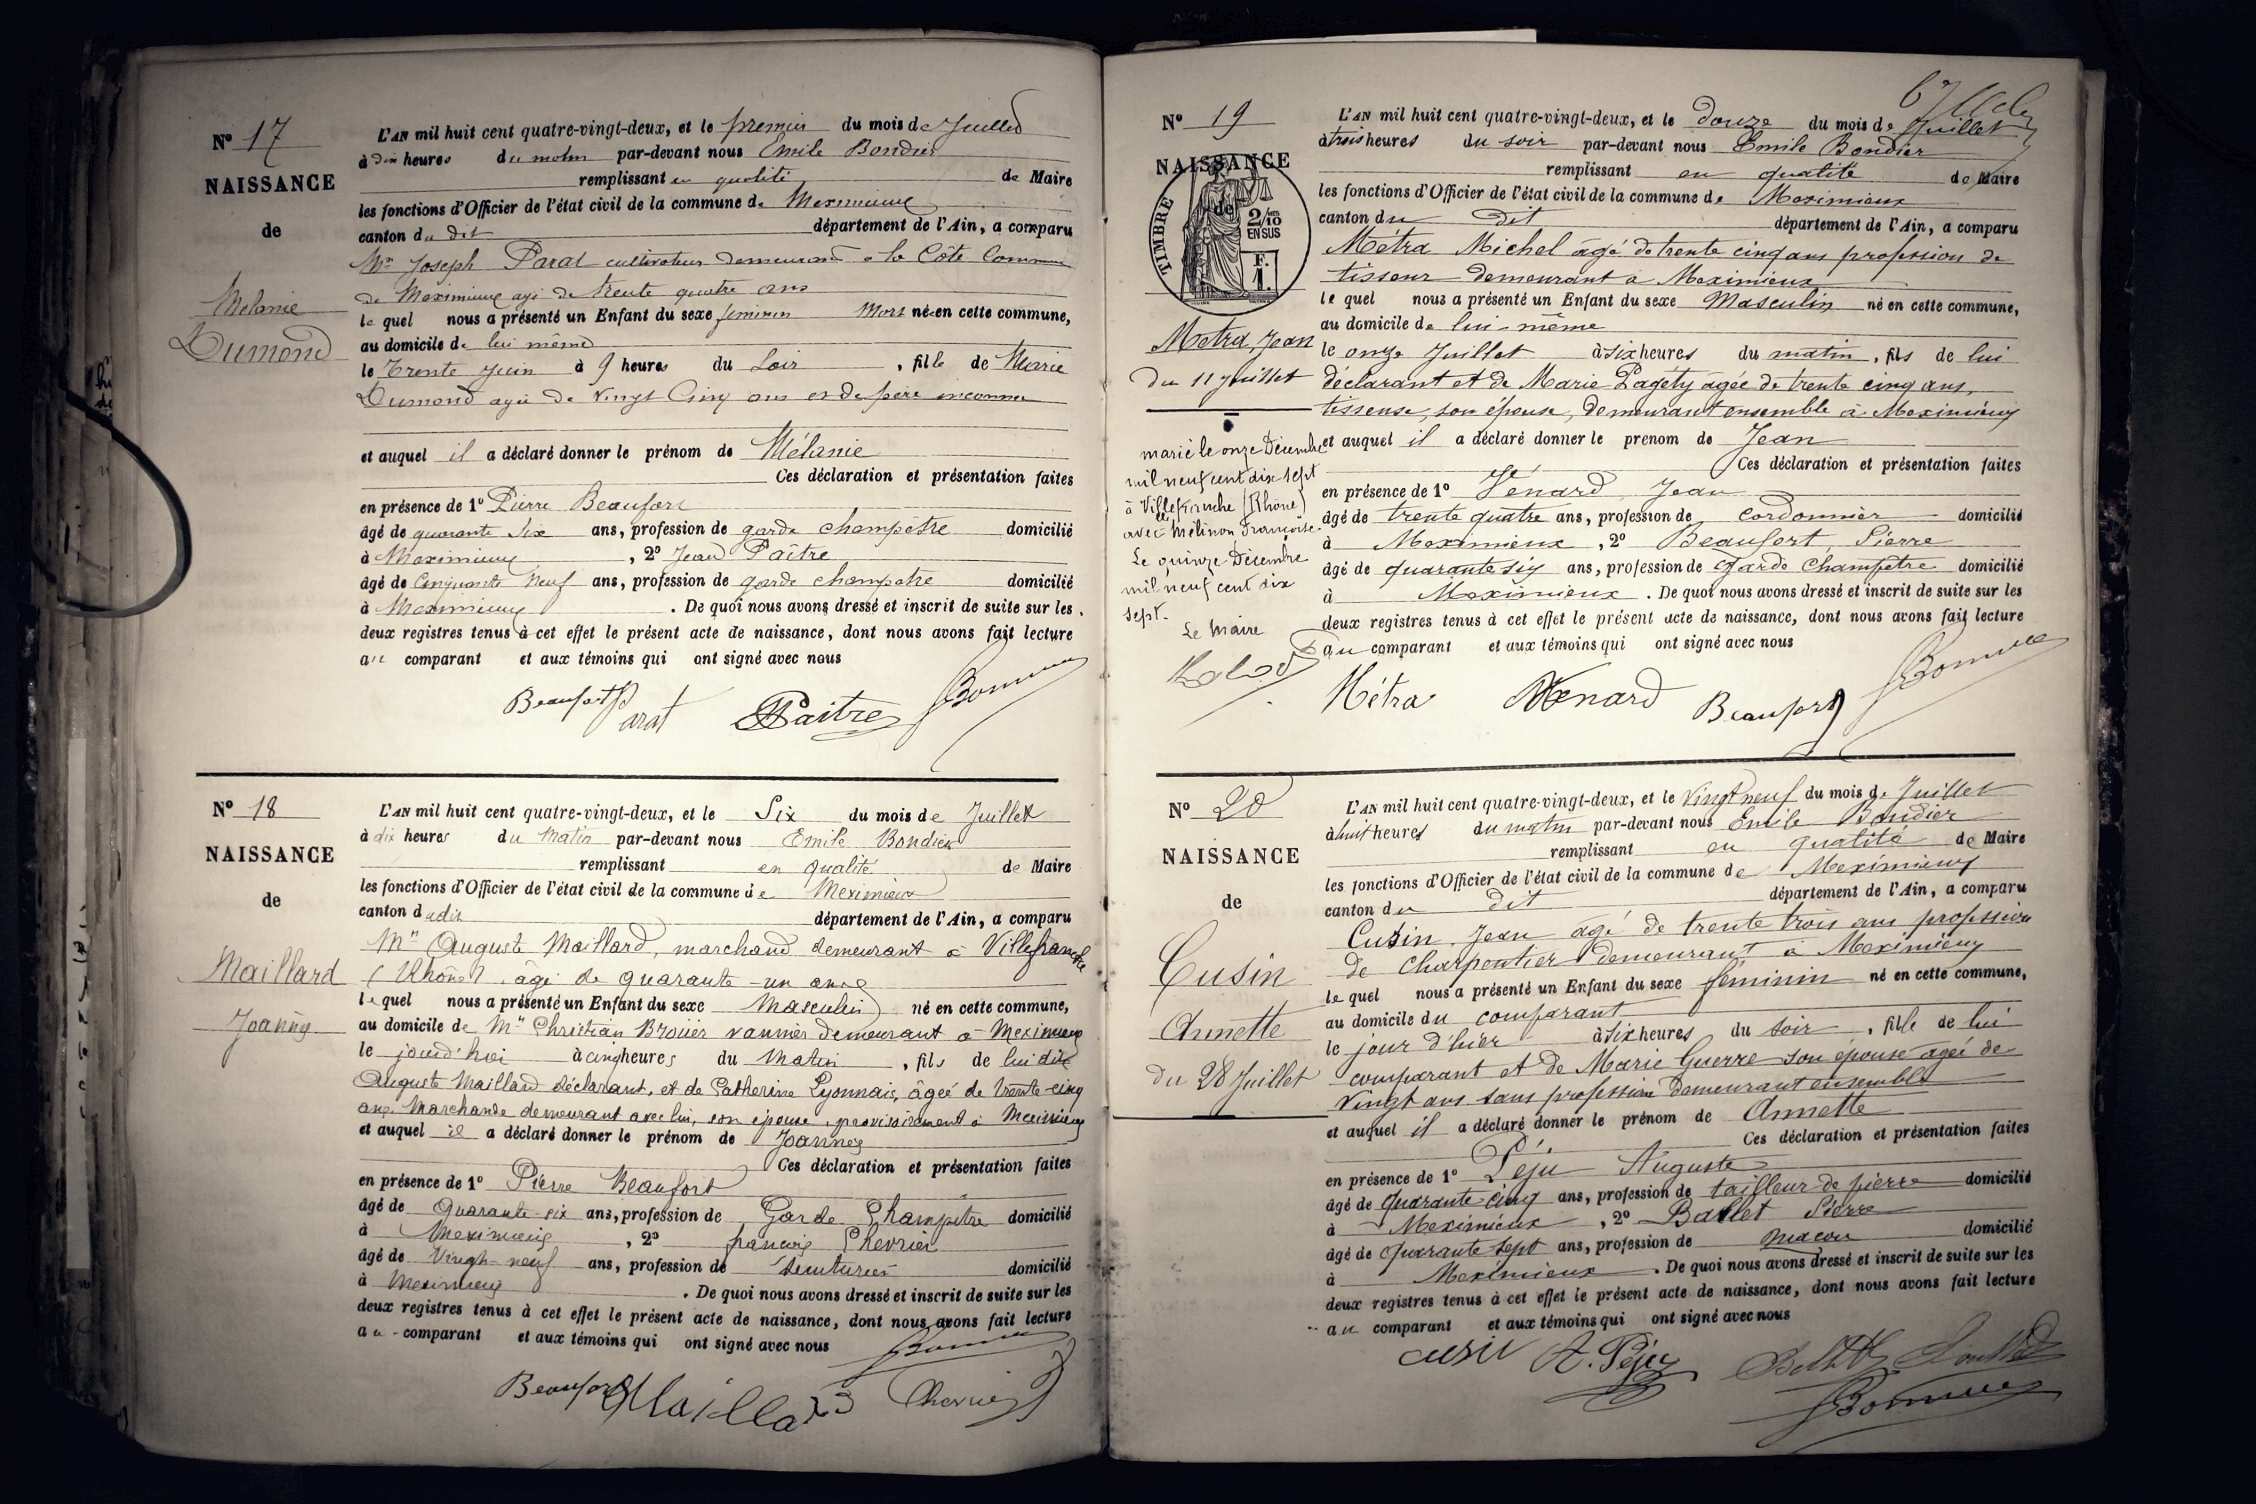 N° 17
NAISSANCE
de
Mélanie
Dumond
L'AN mil huit cent quatre-vingt-deux, et le premier du mois de Juillet
à dix heures du matin par-devant nous Emile Bondier
remplissant en qualité de Maire
les fonctions d'Officier de l'état civil de la commune de Meximieux
canton du dit département de l'Ain, a comparu
Mr Joseph Parat cultivateur demeurant à la Côte Commune
de Meximieux agé de trente quatre ans
lequel nous a présenté un Enfant du sexe féminin Mort née en cette commune,
au domicile de lui même
le Trente Juin à 9 heures du Soir, fille de Marie
Dumond agée de Vingt Cinq ans et de père inconnu
et auquel il a déclaré donner le prénom de Mélanie
Ces déclaration et présentation faites
en présence de 1° Pierre Beaufort
âgé de quarante Six ans, profession de garde champêtre domicilié
à Meximieux, 2° Jean Paitre
âgé de Cinquante Neuf ans, profession de garde champêtre domicilié
à Meximieux. De quoi nous avons dressé et inscrit de suite sur les
deux registres tenus à cet effet le présent acte de naissance, dont nous avons fait lecture
au comparant et aux témoins qui ont signé avec nous
Beaufort Parat Paitre
N° 18
NAISSANCE
de
Maillard
Joanny
L'AN mil huit cent quatre-vingt-deux, et le Six du mois de Juillet
à dix heures du Matin par-devant nous Emile Bondier
remplissant en qualité de Maire
les fonctions d'Officier de l'état civil de la commune de Meximieux
canton du dit département de l'Ain, a comparu
Mr Auguste Maillard, marchand demeurant à Villefranche
(Rhône), âgé de quarante-un ans
lequel nous a présenté un Enfant du sexe Masculin né en cette commune,
au domicile de Mr Christian Broüer vannier demeurant à Meximieux
le jourd'hui à cinq heures du Matin, fils de lui dit
Auguste Maillard déclarant, et de Catherine Lyonnais, âgée de trente-cinq
ans, Marchande demeurant avec lui, son épouse, provisoirement à Meximieux
et auquel il a déclaré donner le prénom de Joannes
Ces déclaration et présentation faites
en présence de 1° Pierre Beaufort
âgé de Quarante-six ans, profession de Garde Champêtre domicilié
à Meximieux, 2° françois Chevrier
âgé de Vingt-neuf ans, profession de domicilié
à Meximieux. De quoi nous avons dressé et inscrit de suite sur les
deux registres tenus à cet effet le présent acte de naissance, dont nous avons fait lecture
au comparant et aux témoins qui ont signé avec nous
Beaufort Maillard Chevrier
N° 19
NAISSANCE
de
TIMBRE
2/10
EN SUS
F.
1.
Metra, Jean
Du 11 Juillet
marié le onze Décembre
mil neuf cent dix sept
à Villefranche (Rhône)
avec Mélinon Françoise.
Le quinze Décembre
mil neuf cent dix
sept.
Le Maire
L'AN mil huit cent quatre-vingt-deux, et le douze du mois de Juillet
à trois heures du soir par-devant nous Emile Bondier
remplissant en qualité de Maire
les fonctions d'Officier de l'état civil de la commune de Meximieux
canton du dit département de l'Ain, a comparu
Métra Michel âgé de trente cinq ans profession de
tisseur demeurant à Meximieux
lequel nous a présenté un Enfant du sexe Masculin né en cette commune,
au domicile de lui-même
le onze Juillet à six heures du matin, fils de lui
déclarant et de Marie Pagéty âgée de trente cinq ans,
tisseuse, son épouse, demeurant ensemble à Meximieux
et auquel il a déclaré donner le prenom de Jean
Ces déclaration et présentation faites
en présence de 1° Vénard Jean
âgé de trente quatre ans, profession de cordonnier domicilié
à Meximieux, 2° Beaufort, Pierre
âgé de quarante six ans, profession de garde champêtre domicilié
à Meximieux. De quoi nous avons dressé et inscrit de suite sur les
deux registres tenus à cet effet le présent acte de naissance, dont nous avons fait lecture
au comparant et aux témoins qui ont signé avec nous
Métra Venard Beaufort
N° 20
NAISSANCE
de
Cusin
Annette
Du 28 Juillet
L'AN mil huit cent quatre-vingt-deux, et le Vingt neuf du mois de Juillet
à huit heures du matin par-devant nous Emile Bondier
remplissant en qualité de Maire
les fonctions d'Officier de l'état civil de la commune de Meximieux
canton du dit département de l'Ain, a comparu
Cusin Jean agé de trente trois ans profession
de Charpentier demeurant à Meximieux
lequel nous a présenté un Enfant du sexe féminin né en cette commune,
au domicile du comparant
le jour d'hier à six heures du soir, fille de lui
comparant et de Marie Guerre son épouse agée de
Vingt ans sans profession demeurant ensemble
et auquel il a déclaré donner le prénom de Annette
Ces déclaration et présentation faites
en présence de 1° Péju Auguste
âgé de quarante-cinq ans, profession de tailleur de pierre domicilié
à Meximieux, 2° Ballet Pierre
âgé de quarante sept ans, profession de maçon domicilié
à Meximieux. De quoi nous avons dressé et inscrit de suite sur les
deux registres tenus à cet effet le présent acte de naissance, dont nous avons fait lecture
au comparant et aux témoins qui ont signé avec nous
cusin A. Péju